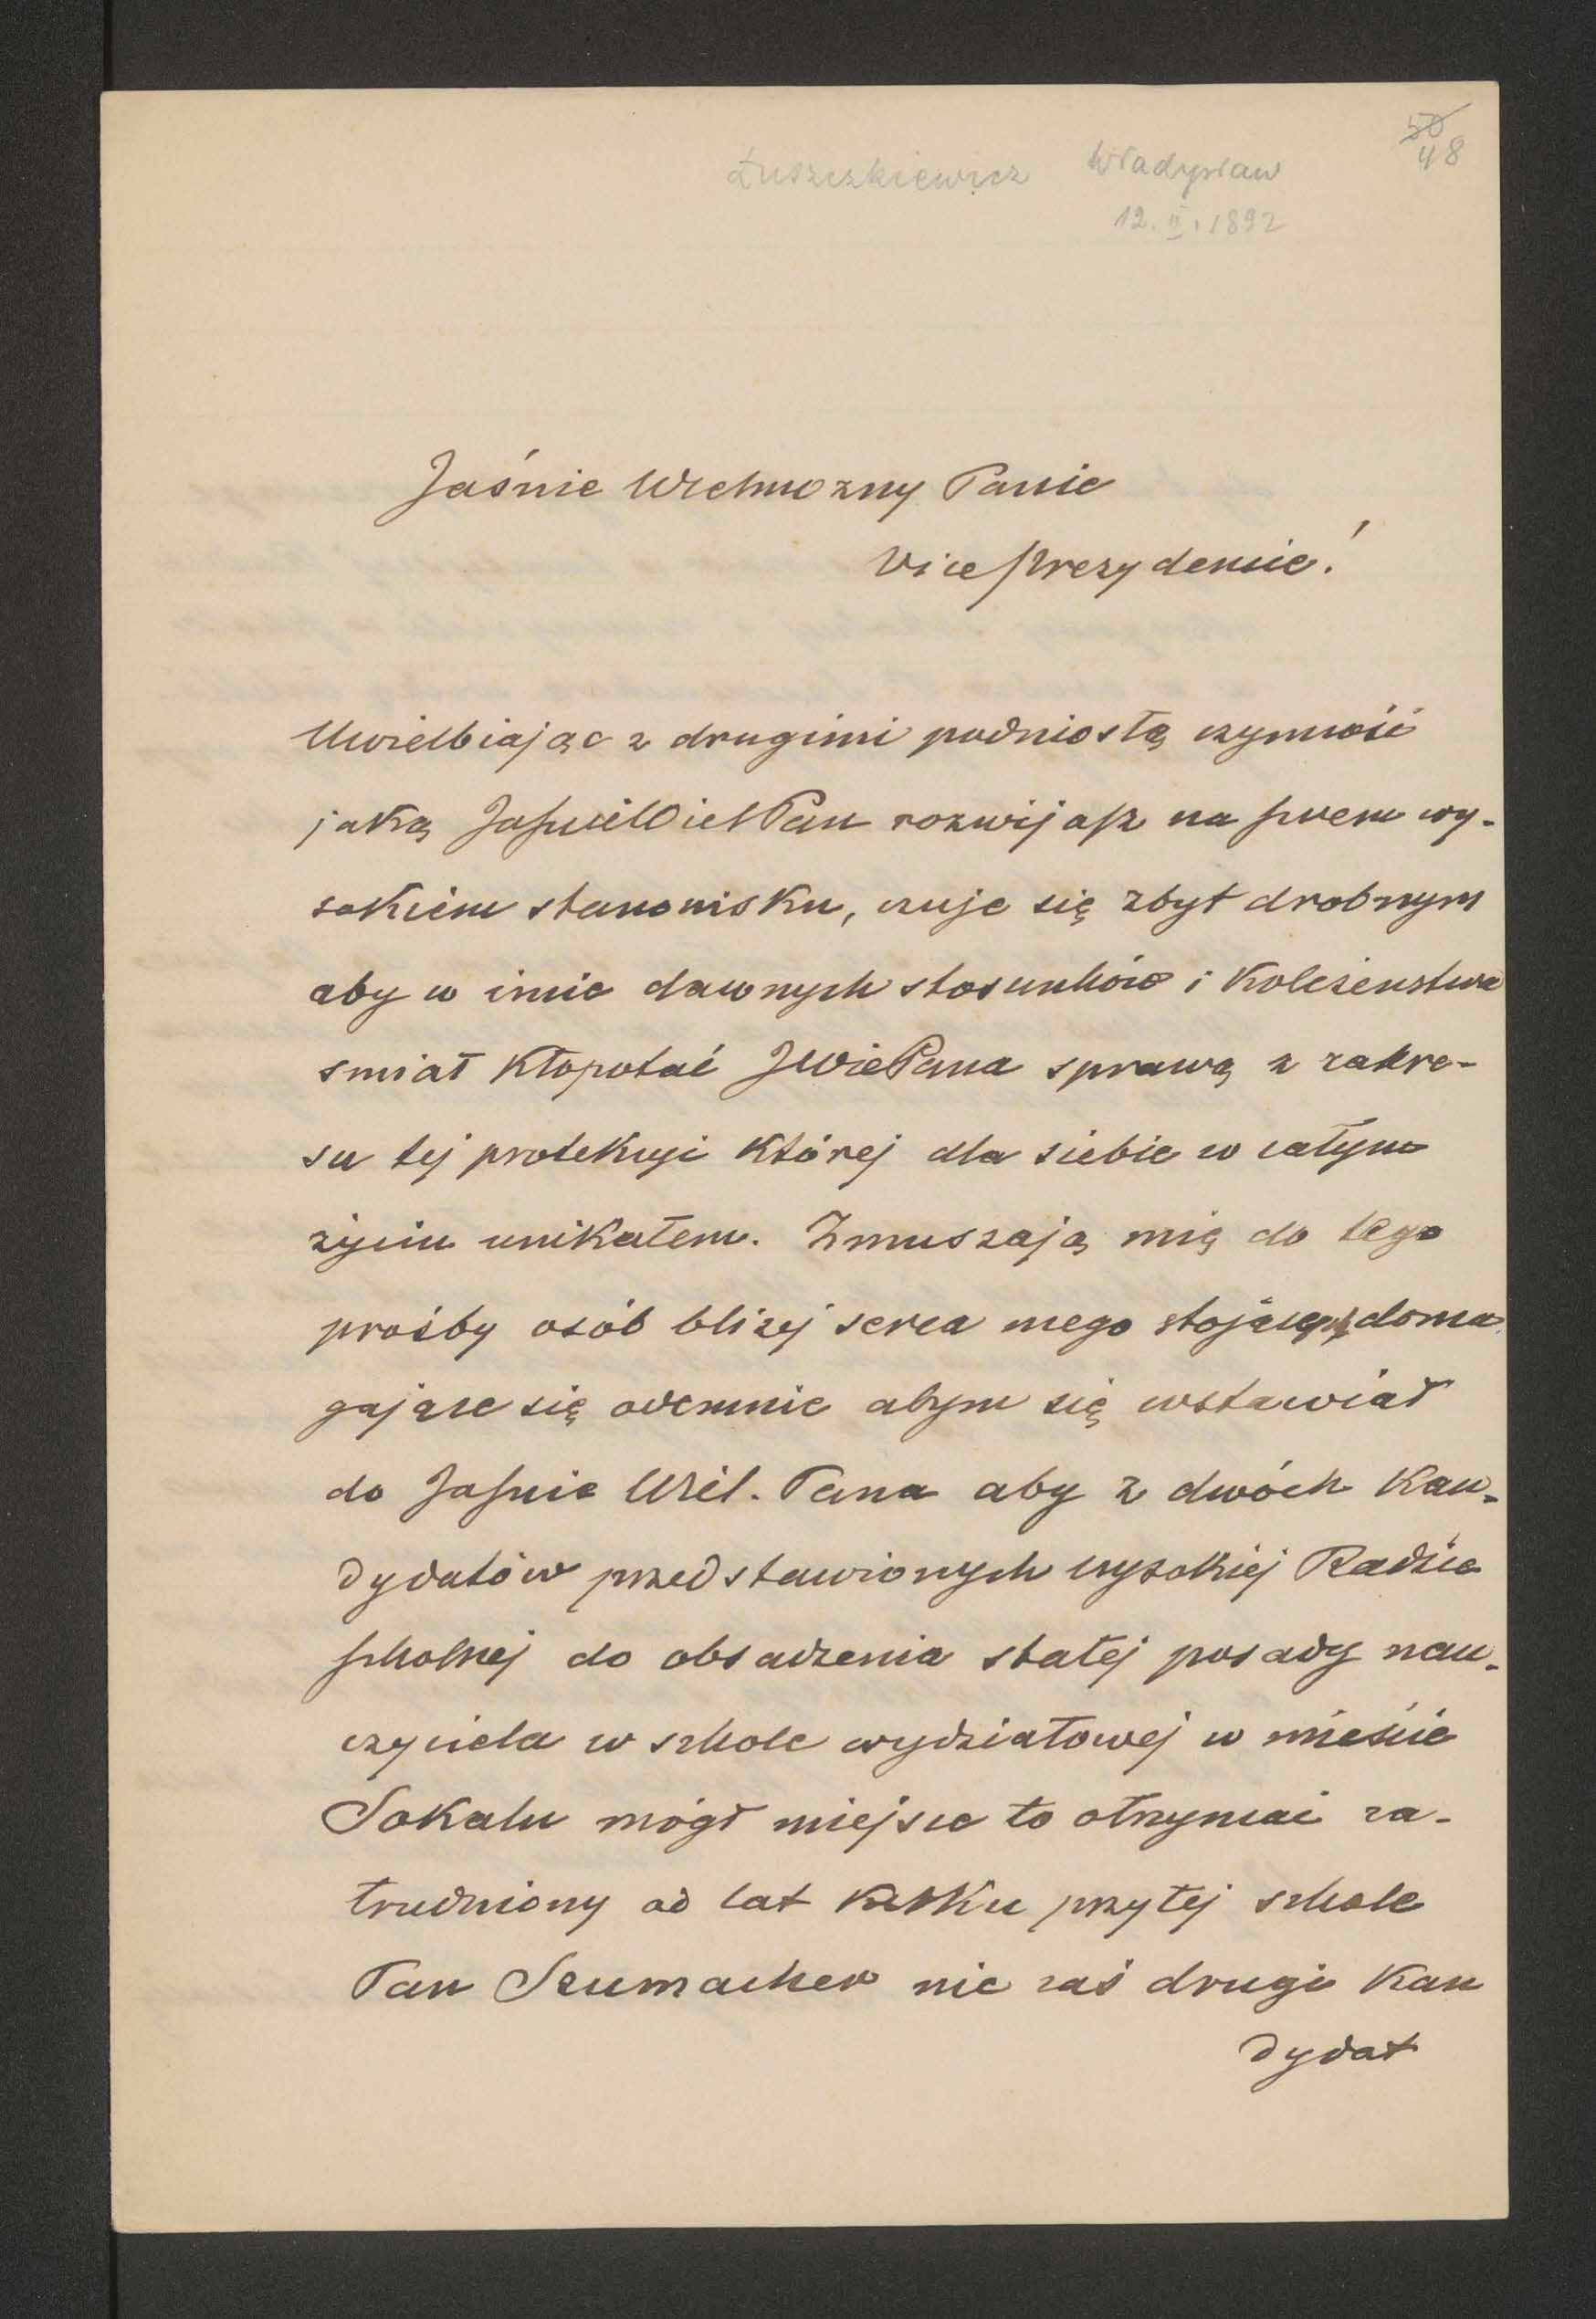 50
48
Łuszczkiewicz Władysław
12. II. 1892
Jaśnie Wielmozny Panie
Viceprezydencie!
Uwielbiając z drugimi podniosłą czynność
jaką JaśnieWielPan rozwijasz na swem wy-
sokiem stanowisku, czuje się zbyt drobnym
aby w imie dawnych stosunków i Koleżenstwa
smiał Kłopotać JWiePana sprawą z zakre-
su tej protekcyi której dla siebie w całym
życiu unikałem. Zmuszają mię do tego
prośby osób bliżej serca mego stojących doma
gające się odemnie abym się wstawiał
do Jaśnie Wiel. Pana aby z dwóch Kan-
dydatów przedstawionych wysokiej Radzie
szkolnej do obsadzenia stałej posady nau-
czyciela w szkole wydziałowej w mieście
Sokalu mógł miejsce to otrzymać za-
trudniony od lat Kilku przy tej szkole
Pan Szumacher nie zaś drugi Kan
dydat